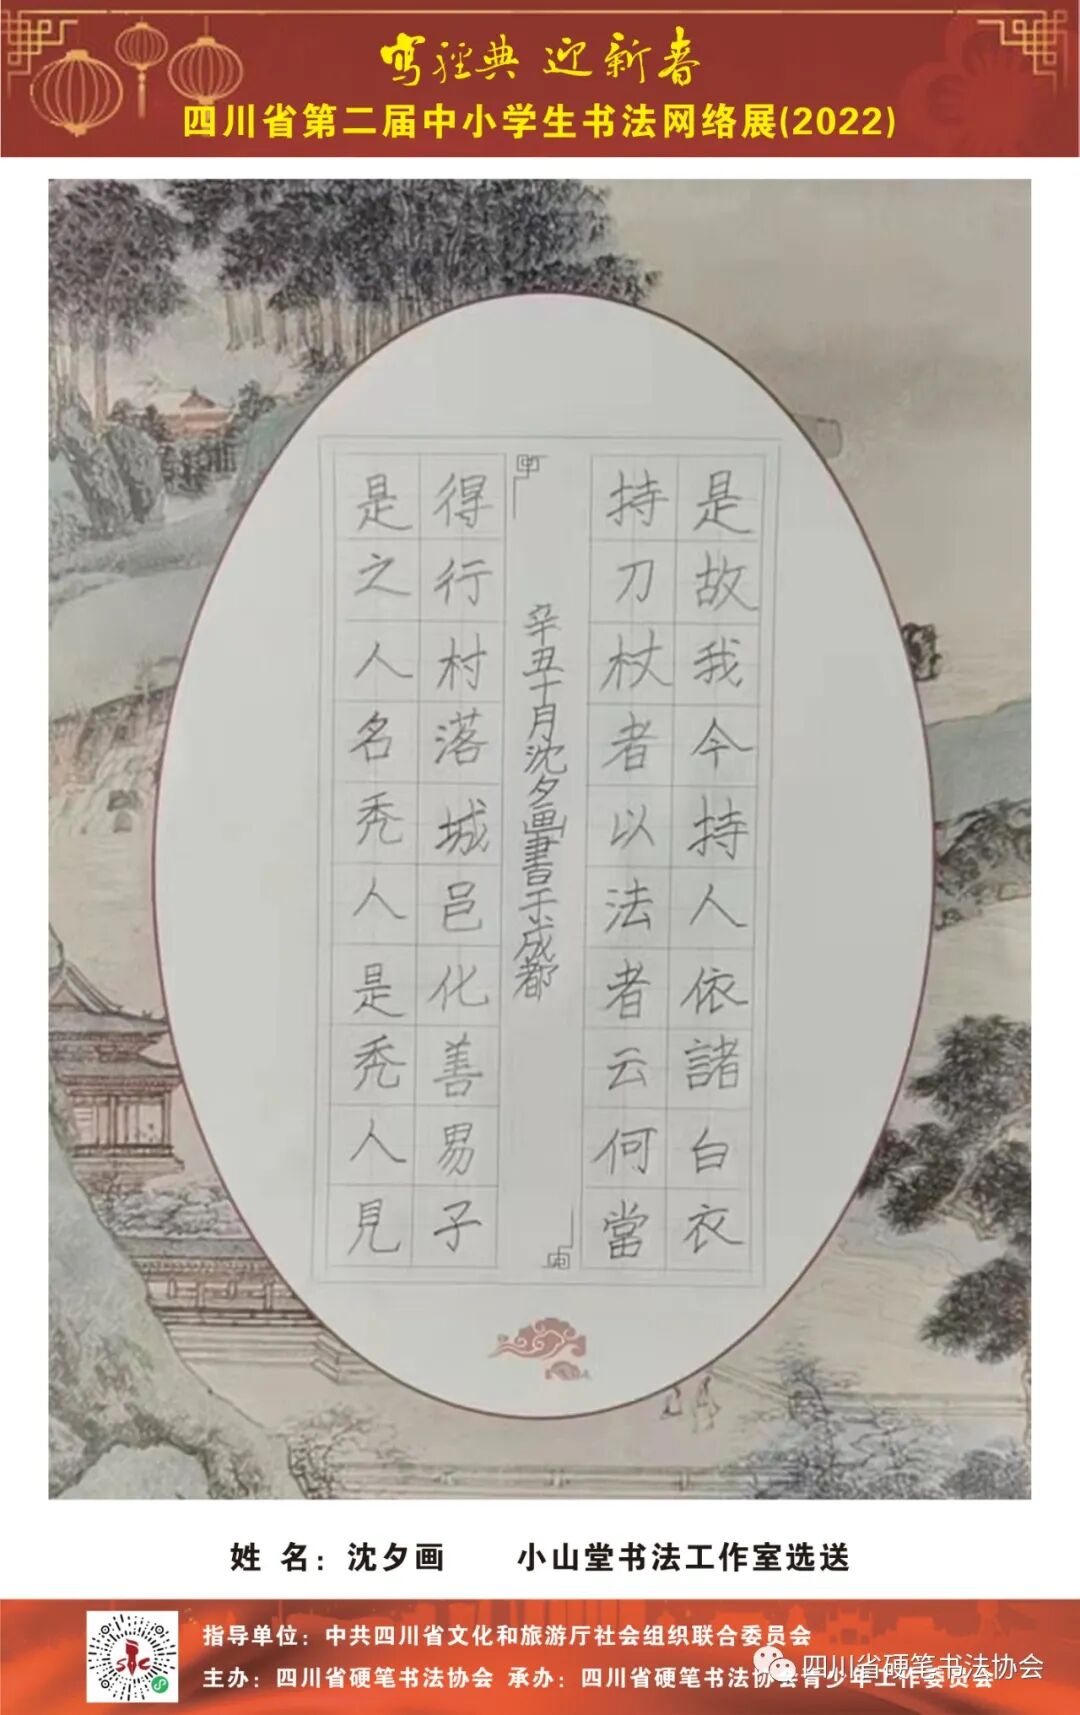 写經典 迎新春
四川省第二届中小学生书法网络展(2022)
是故我今持人依諸白衣
持刀杖者以法者云何當
辛丑十月沈夕画書于成都
得行村落城邑化善男子
是之人名秃人是秃人見
姓 名：沈夕画 小山堂书法工作室选送
指导单位：中共四川省文化和旅游厅社会组织联合委员会
主办：四川省硬笔书法协会 承办：四川省硬笔书法协会青少年工作委员会
四川省硬笔书法协会